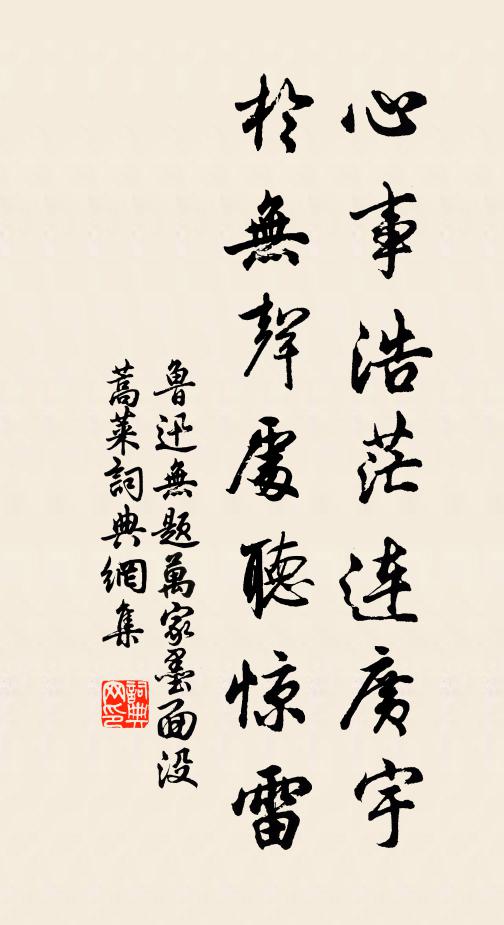 心事浩茫連廣宇
於無聲處聽惊雷
魯迅無題萬家墨面没
蒿萊詞典網集
詞典网印